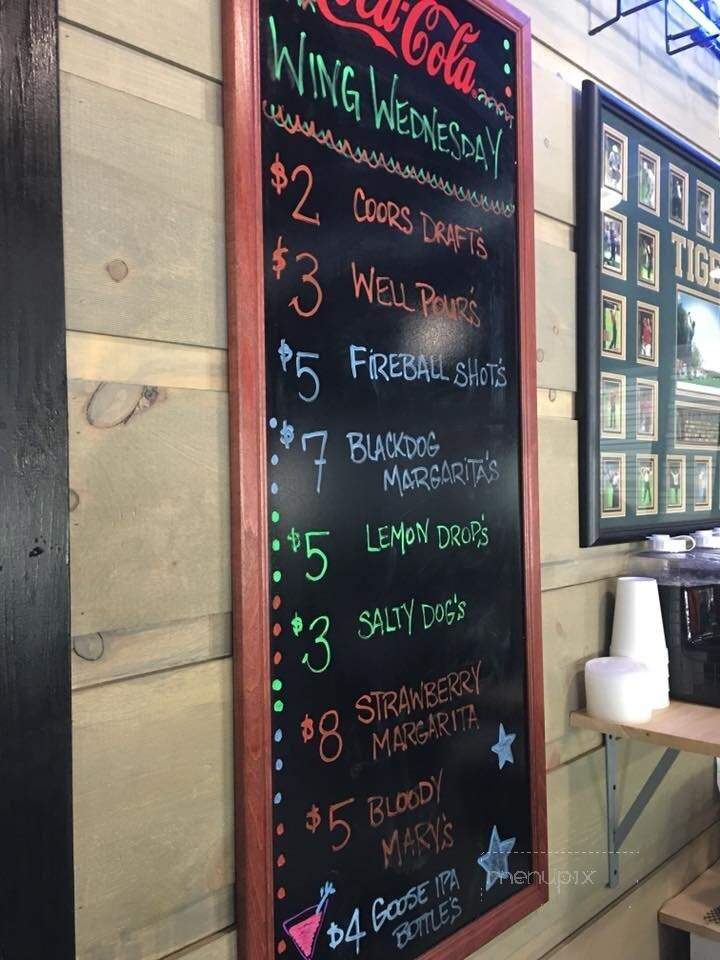 Coca-Cola
WING WEDNESDAY
$2 COORS DRAFT'S
$3 WELL POUR'S
$5 FIREBALL SHOT'S
$7 BLACKDOG
MARGARITA'S
$5 LEMON DROP'S
$3 SALTY DOG'S
$8 STRAWBERRY
MARGARITA
$5 BLOODY
MARY'S
$4 GOOSE IPA
BOTTLE'S
TIGE
menupix